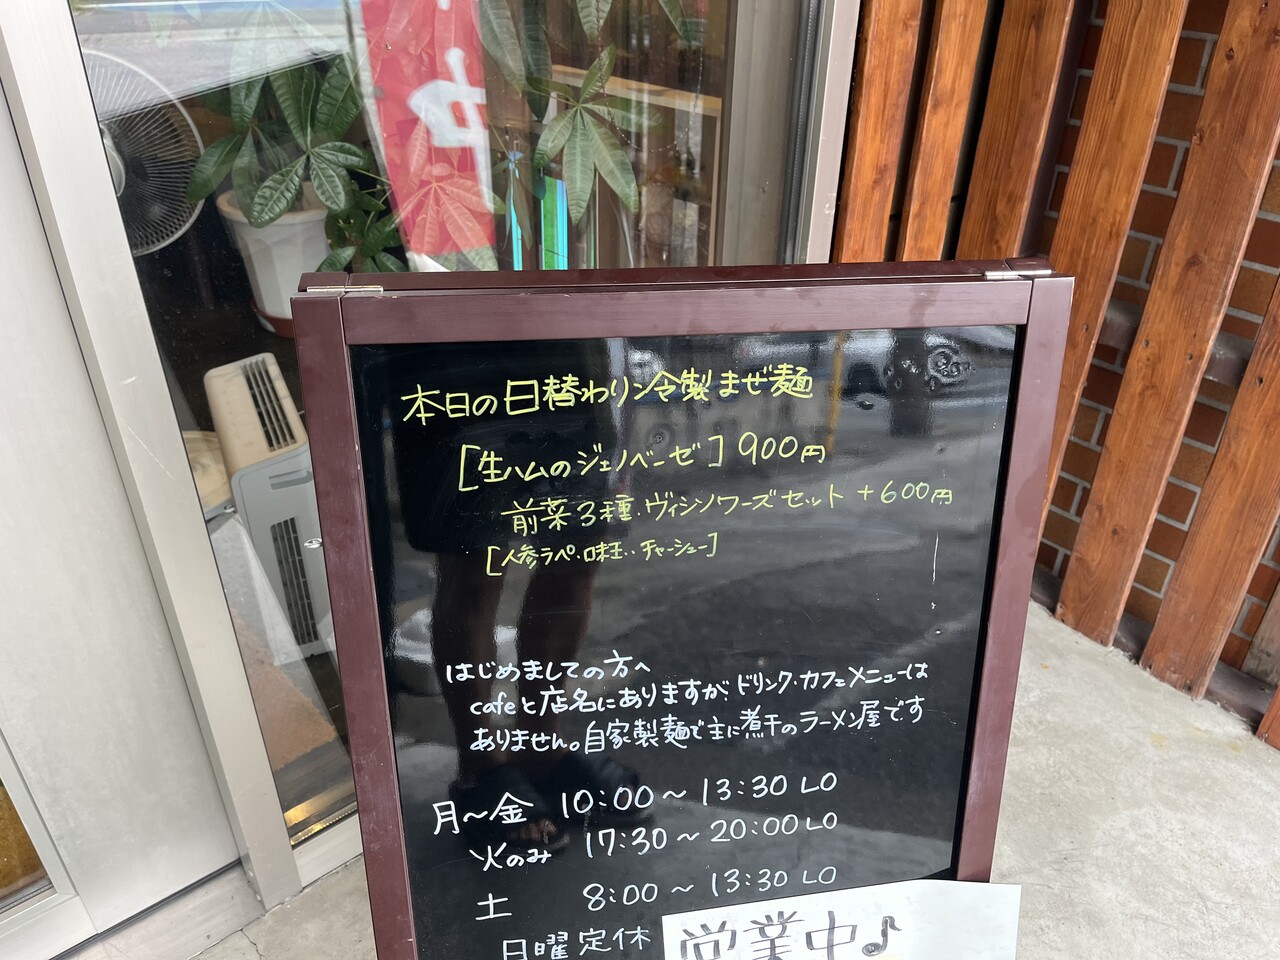 中
本日の日替わり冷製まぜ麺
[生ハムのジェノベーゼ] 900円
前菜3種・ヴィシソワーズセット +600円
[人参ラペ・味玉・チャーシュー]
はじめましての方へ
cafeと店名にありますが、ドリンク・カフェメニューは
ありません。自家製麺で主に煮干のラーメン屋です
月〜金 10:00〜13:30 LO
火のみ 17:30〜20:00 LO
土 8:00〜13:30 LO
日曜定休
営業中♪